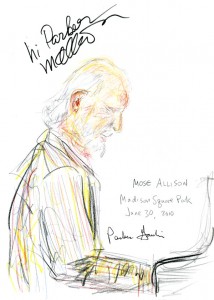 hi Parker
MOSE ALLISON
Madison Square Park
June 30, 2010
Parker